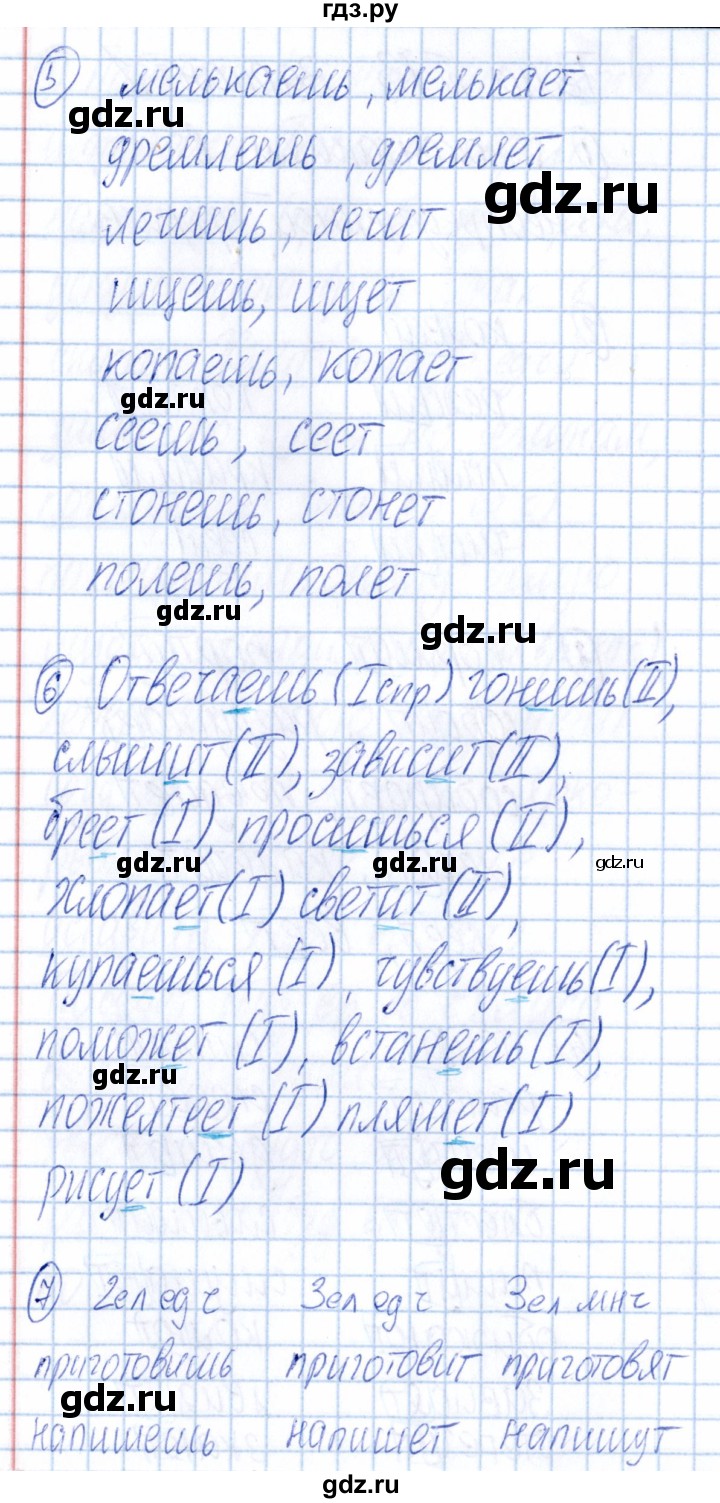 гдз.ру
5 мелькаешь, мелькает
gdz.ru
дремлешь, дремлет
gdz.ru
лечишь, лечит
ищешь, ищет
копаешь, копает
gdz.ru
сеешь, сеет
стонешь, стонет
полешь, полет
gdz.ru
gdz.ru
6 Отвечаешь (I спр) гонишь (II),
слышит (II), зависит (II),
бреет (I), просишься (II),
gdz.ru gdz.ru gdz.ru
хлопает (I) светит (II),
купаешься (I), чувствуешь (I),
поможет (I), встанешь (I),
gdz.ru
пожелтеет (I) пляшет (I)
gdz.ru
рисует (I)
7 2 ел ед ч 3 ел ед ч 3 ел мн ч
приготовишь приготовит приготовят
gdz.ru
напишешь напишет напишут
gdz.ru